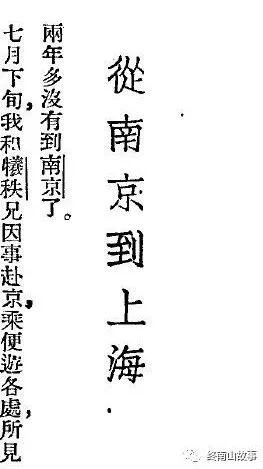 從南京到上海.
兩年多沒有到南京了。
七月下旬,我和犧秩兄因事赴京,乘便遊各處,所見
终南山故事